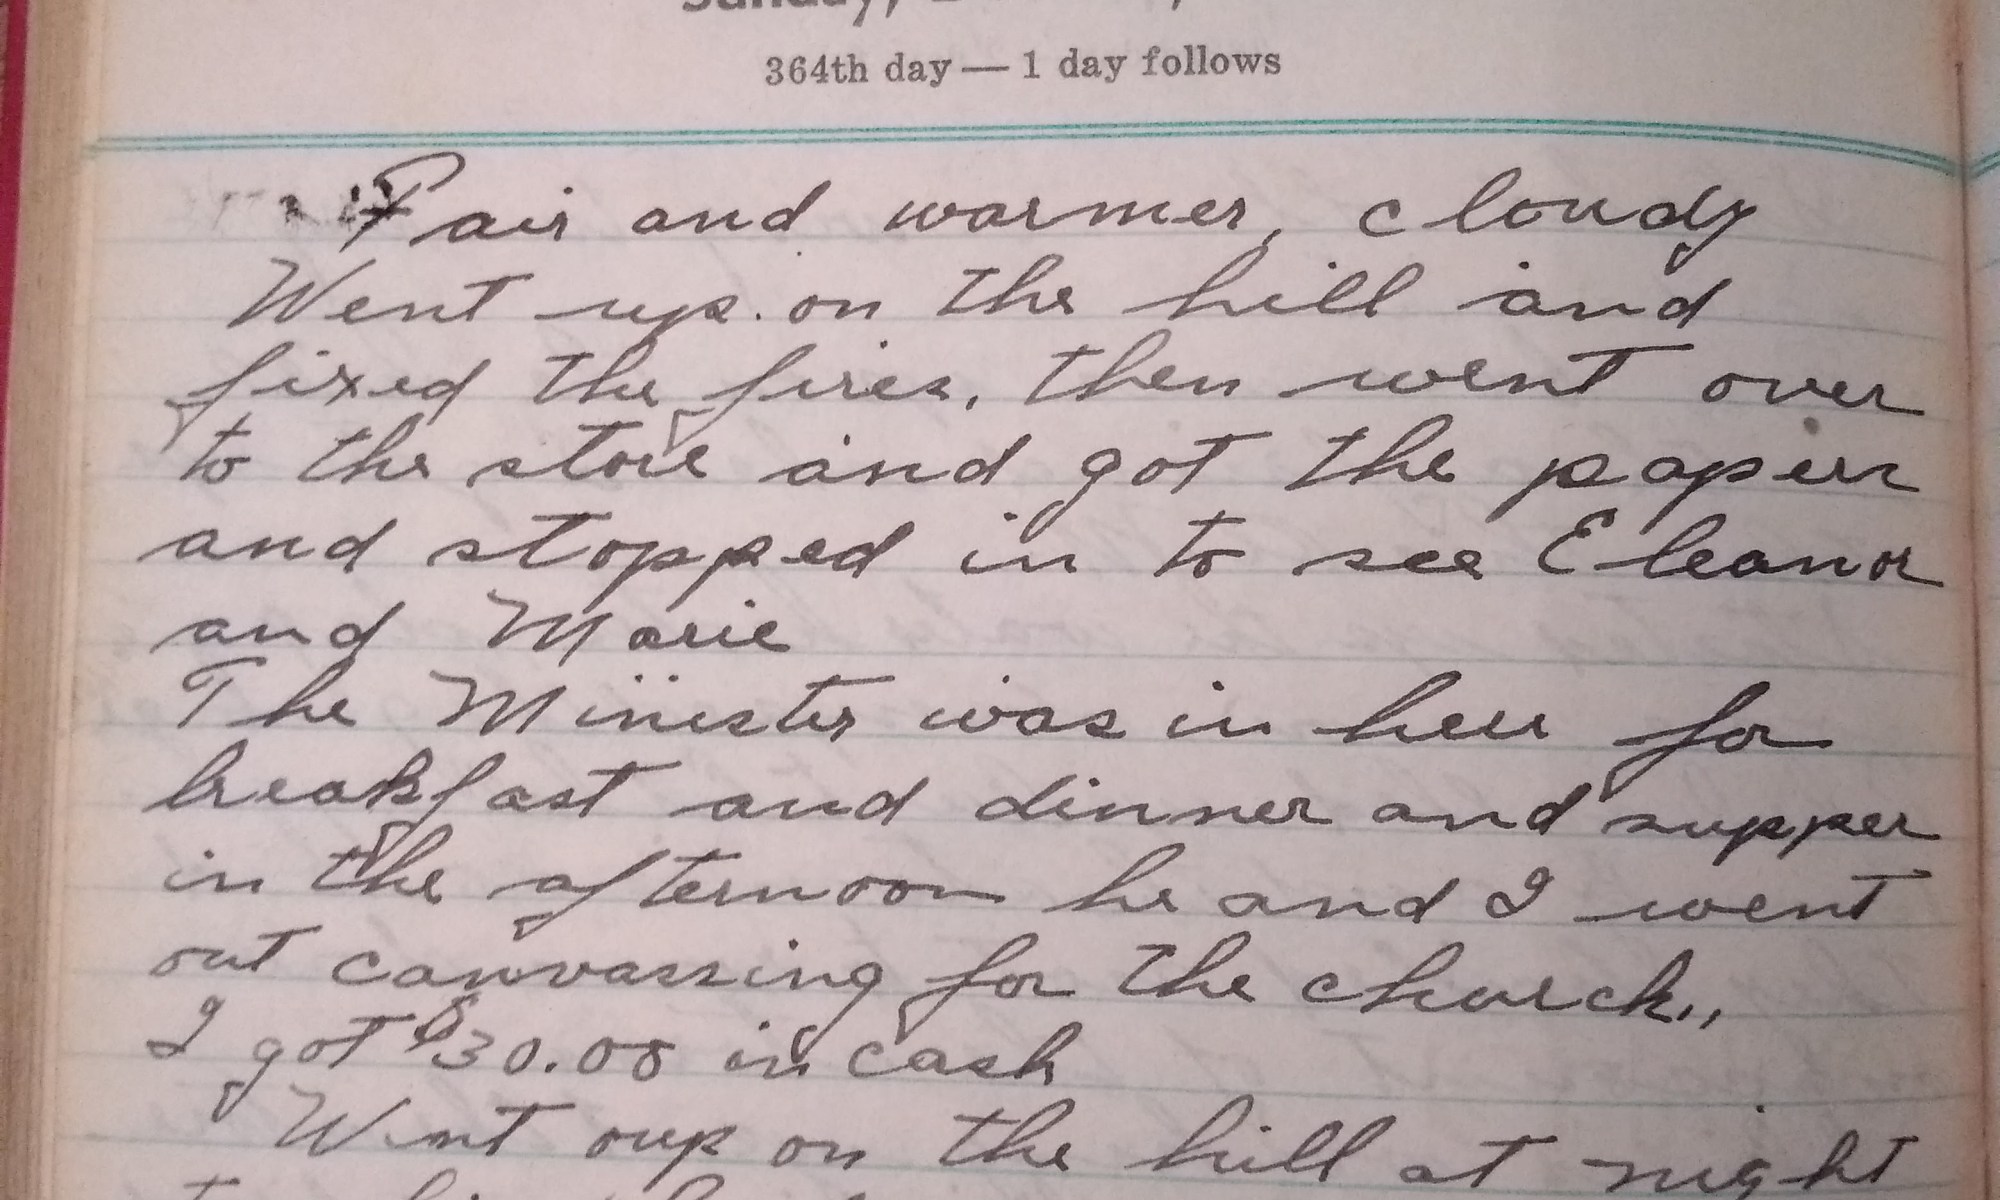 Sunday,
364th day — 1 day follows
Fair and warmer, cloudy
Went up. on the hill and
fixed the fires, then went over
to the store and got the paper
and stopped in to see Eleanor
and Marie
The Minister was in here for
breakfast and dinner and supper
in the afternoon he and I went
out canvassing for the church,,
I got $30.00 in cash
Went oup on the hill at night